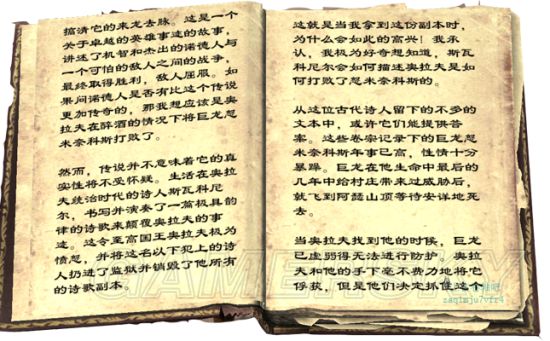 搞清它的来龙去脉。这是一个
关于卓越的英雄事迹的故事，
讲述了机智和杰出的诺德人与
一个可怕的敌人之间的战争，
最终取得胜利，敌人屈服。如
果问诺德人是否有比这个传说
更加传奇的，那我想应该是奥
拉夫在醉酒的情况下将巨龙忽
米奈科斯打败了。
然而，传说并不意味着它的真
实性将不受怀疑。生活在奥拉
夫统治时代的诗人斯瓦科尼
尔，书写并演奏了一篇极具韵
律的诗歌来颠覆奥拉夫的事
迹。这令至高国王奥拉夫极为
愤怒，并将这名以下犯上的诗
人扔进了监狱并销毁了他所有
的诗歌副本。
这就是当我拿到这份副本时，
为什么会如此的高兴！我承
认，我极为好奇想知道，斯瓦
科尼尔会如何描述奥拉夫是如
何打败了忽米奈科斯的。
从这位古代诗人留下的不多的
文本中，或许它们能提供答
案。这些卷宗记录下的巨龙忽
米奈科斯年事已高，性情十分
暴躁。巨龙在他生命中最后的
几年中给村庄带来过威胁后，
就飞到阿瑟山顶等待安详地死
去。
当奥拉夫找到他的时候，巨龙
已虚弱得无法进行防护。奥拉
夫和他的手下毫不费力地将它
俘获，但是他们决定抓住这个
GAMERSKY
zaqimju7vfr4